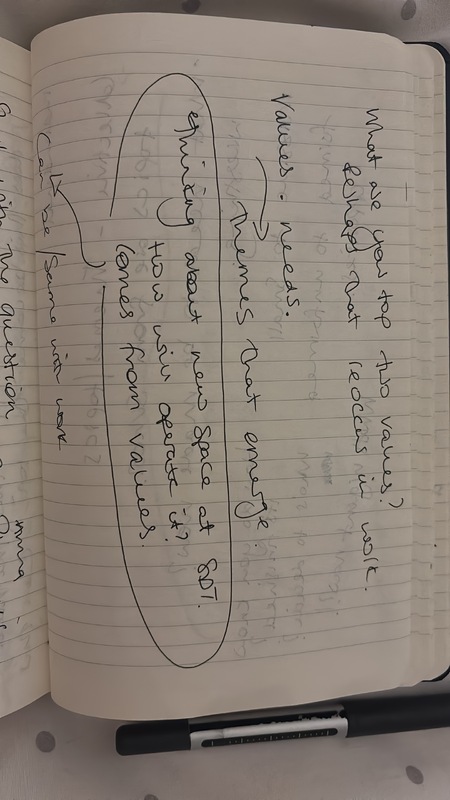 What are you top two values?
Perhaps that reoccurs in work.
Values. needs.
themes that emerge.
thinking about new space at
How will operate it?
Comes from values.
Can be / Same with work
the question